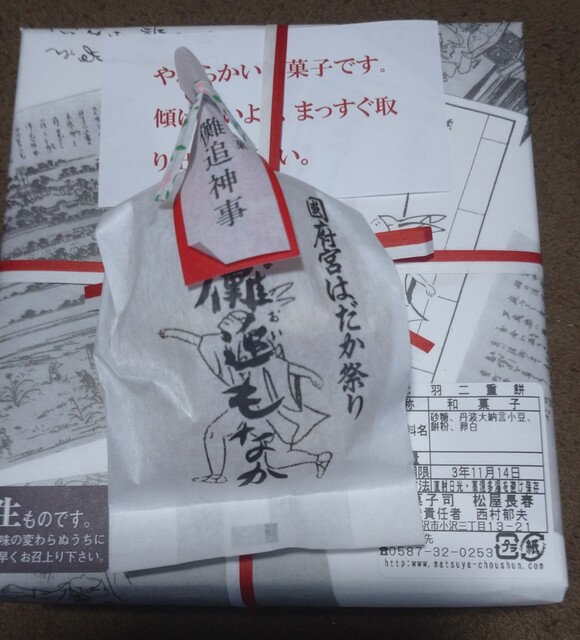 や らかい 菓子です。
傾 いよ 、まっすぐ取
り い。
儺追神事
國府宮はだか祭り
おい
儺追もなか
生ものです。
味の変わらぬうちに
早くお召上り下さい。
羽二重餅
称 和菓子
料名 砂糖、丹波大納言小豆、
餅粉、卵白
量
期限 3年11月14日
直射日光・高温多湿を避け保存
菓子司 松屋長春
責任者 西村郁夫
沢市小沢三丁目13-21
先
☎0587-32-0253
プラ 紙
http://www.matsuya-choushun.com/